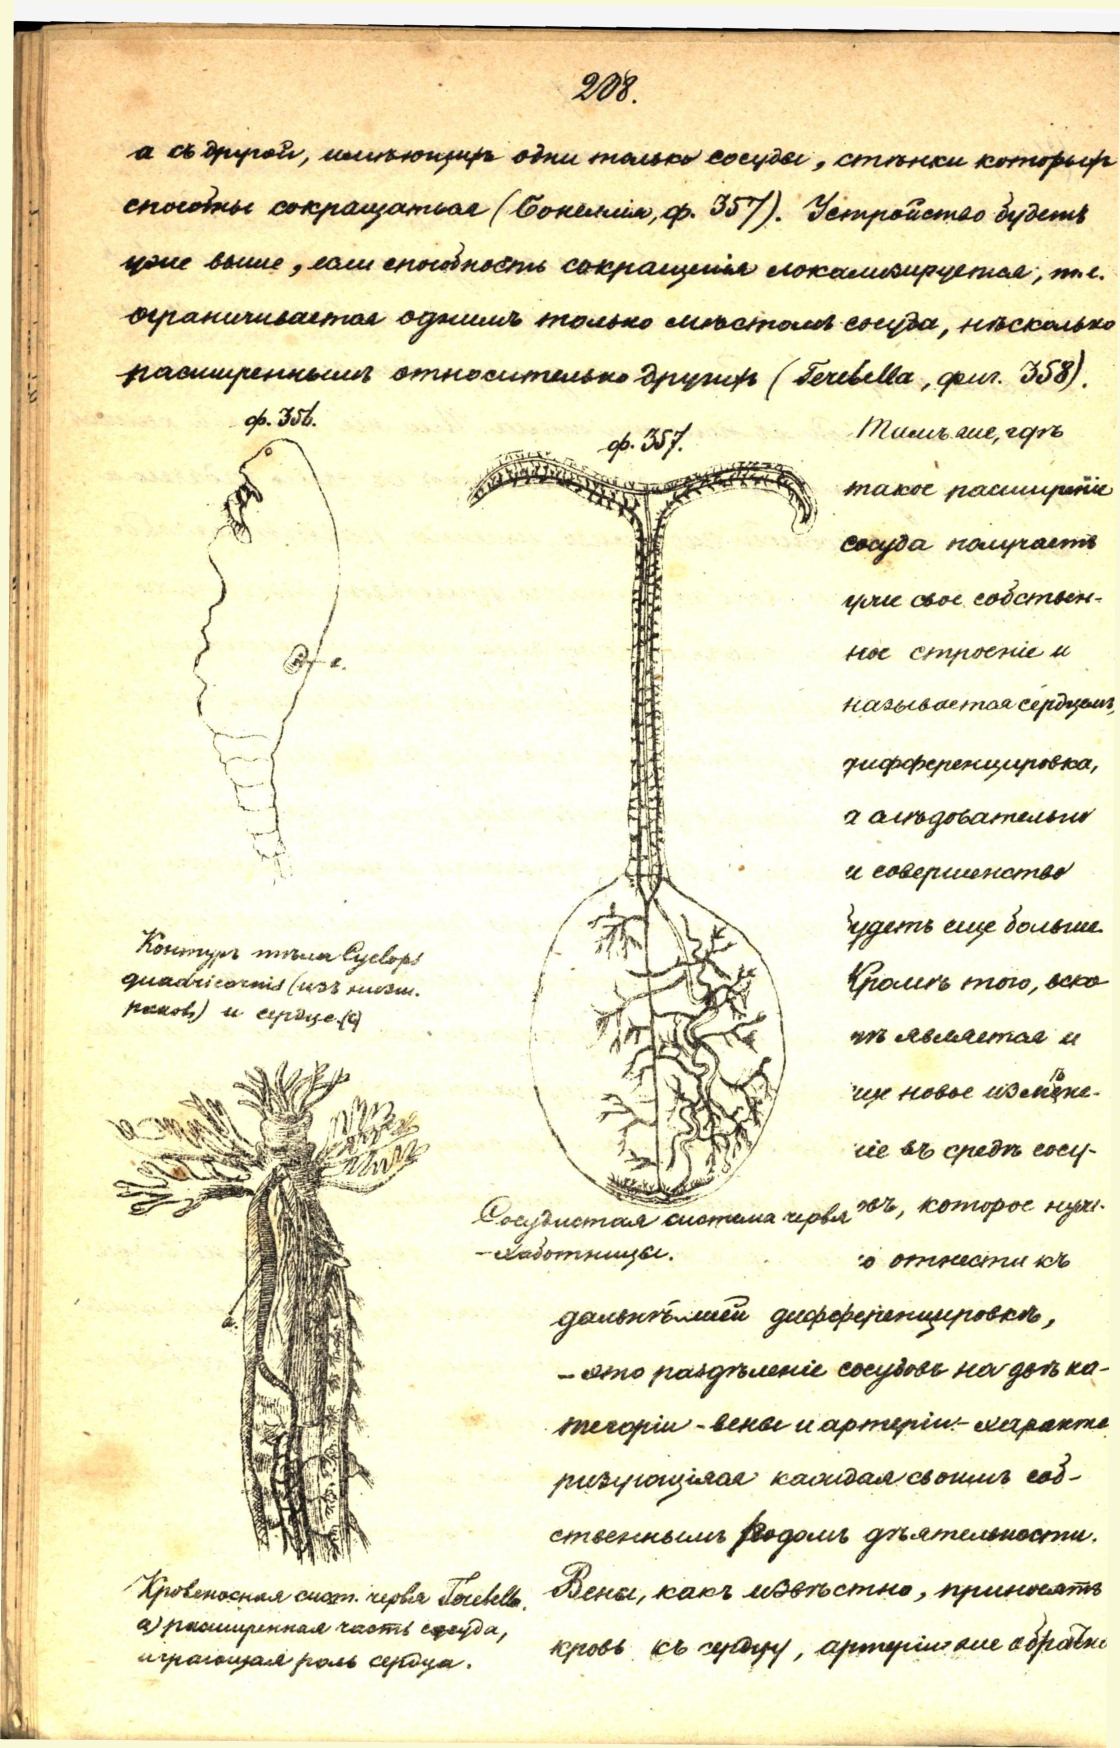 208.
а съ другой, имѣющихъ одни только сосуды, стѣнки которыхъ
способны сокращаться (Бонеллія, ф. 357). Устройство будетъ
уже выше, если способность сокращенія локализируется, т.е.
ограничивается однимъ только мѣстомъ сосуда, нѣсколько
расширеннымъ относительно другихъ (Terebella, фиг. 358).
ф. 356.
с.
Контуръ тѣла Cyclops
quadricornis (изъ низш.
раковъ) и сердце (с)
ф. 357.
Сосудистая система червя
Тамъ же, гдѣ
такое расширеніе
сосуда получаетъ
уже свое собствен-
ное строеніе и
называется сердцемъ,
дифференцировка,
а слѣдовательно
и совершенство
будетъ еще больше.
Кромѣ того, вско
рѣ является и
еще новое измѣне-
ніе въ средѣ сосу-
довъ, которое нуж-
но отнести къ
дальнѣйшей дифференцировкѣ,
– это раздѣленіе сосудовъ на двѣ ка-
тегоріи – вены и артеріи – характе
ризующіяся каждая своимъ соб-
ственнымъ родомъ дѣятельности.
Вены, какъ извѣстно, приносятъ
кровь къ сердцу, артеріи же обратно
а.
Кровеносная сист. червя Terebella.
а) расширенная часть сосуда,
играющая роль сердца.